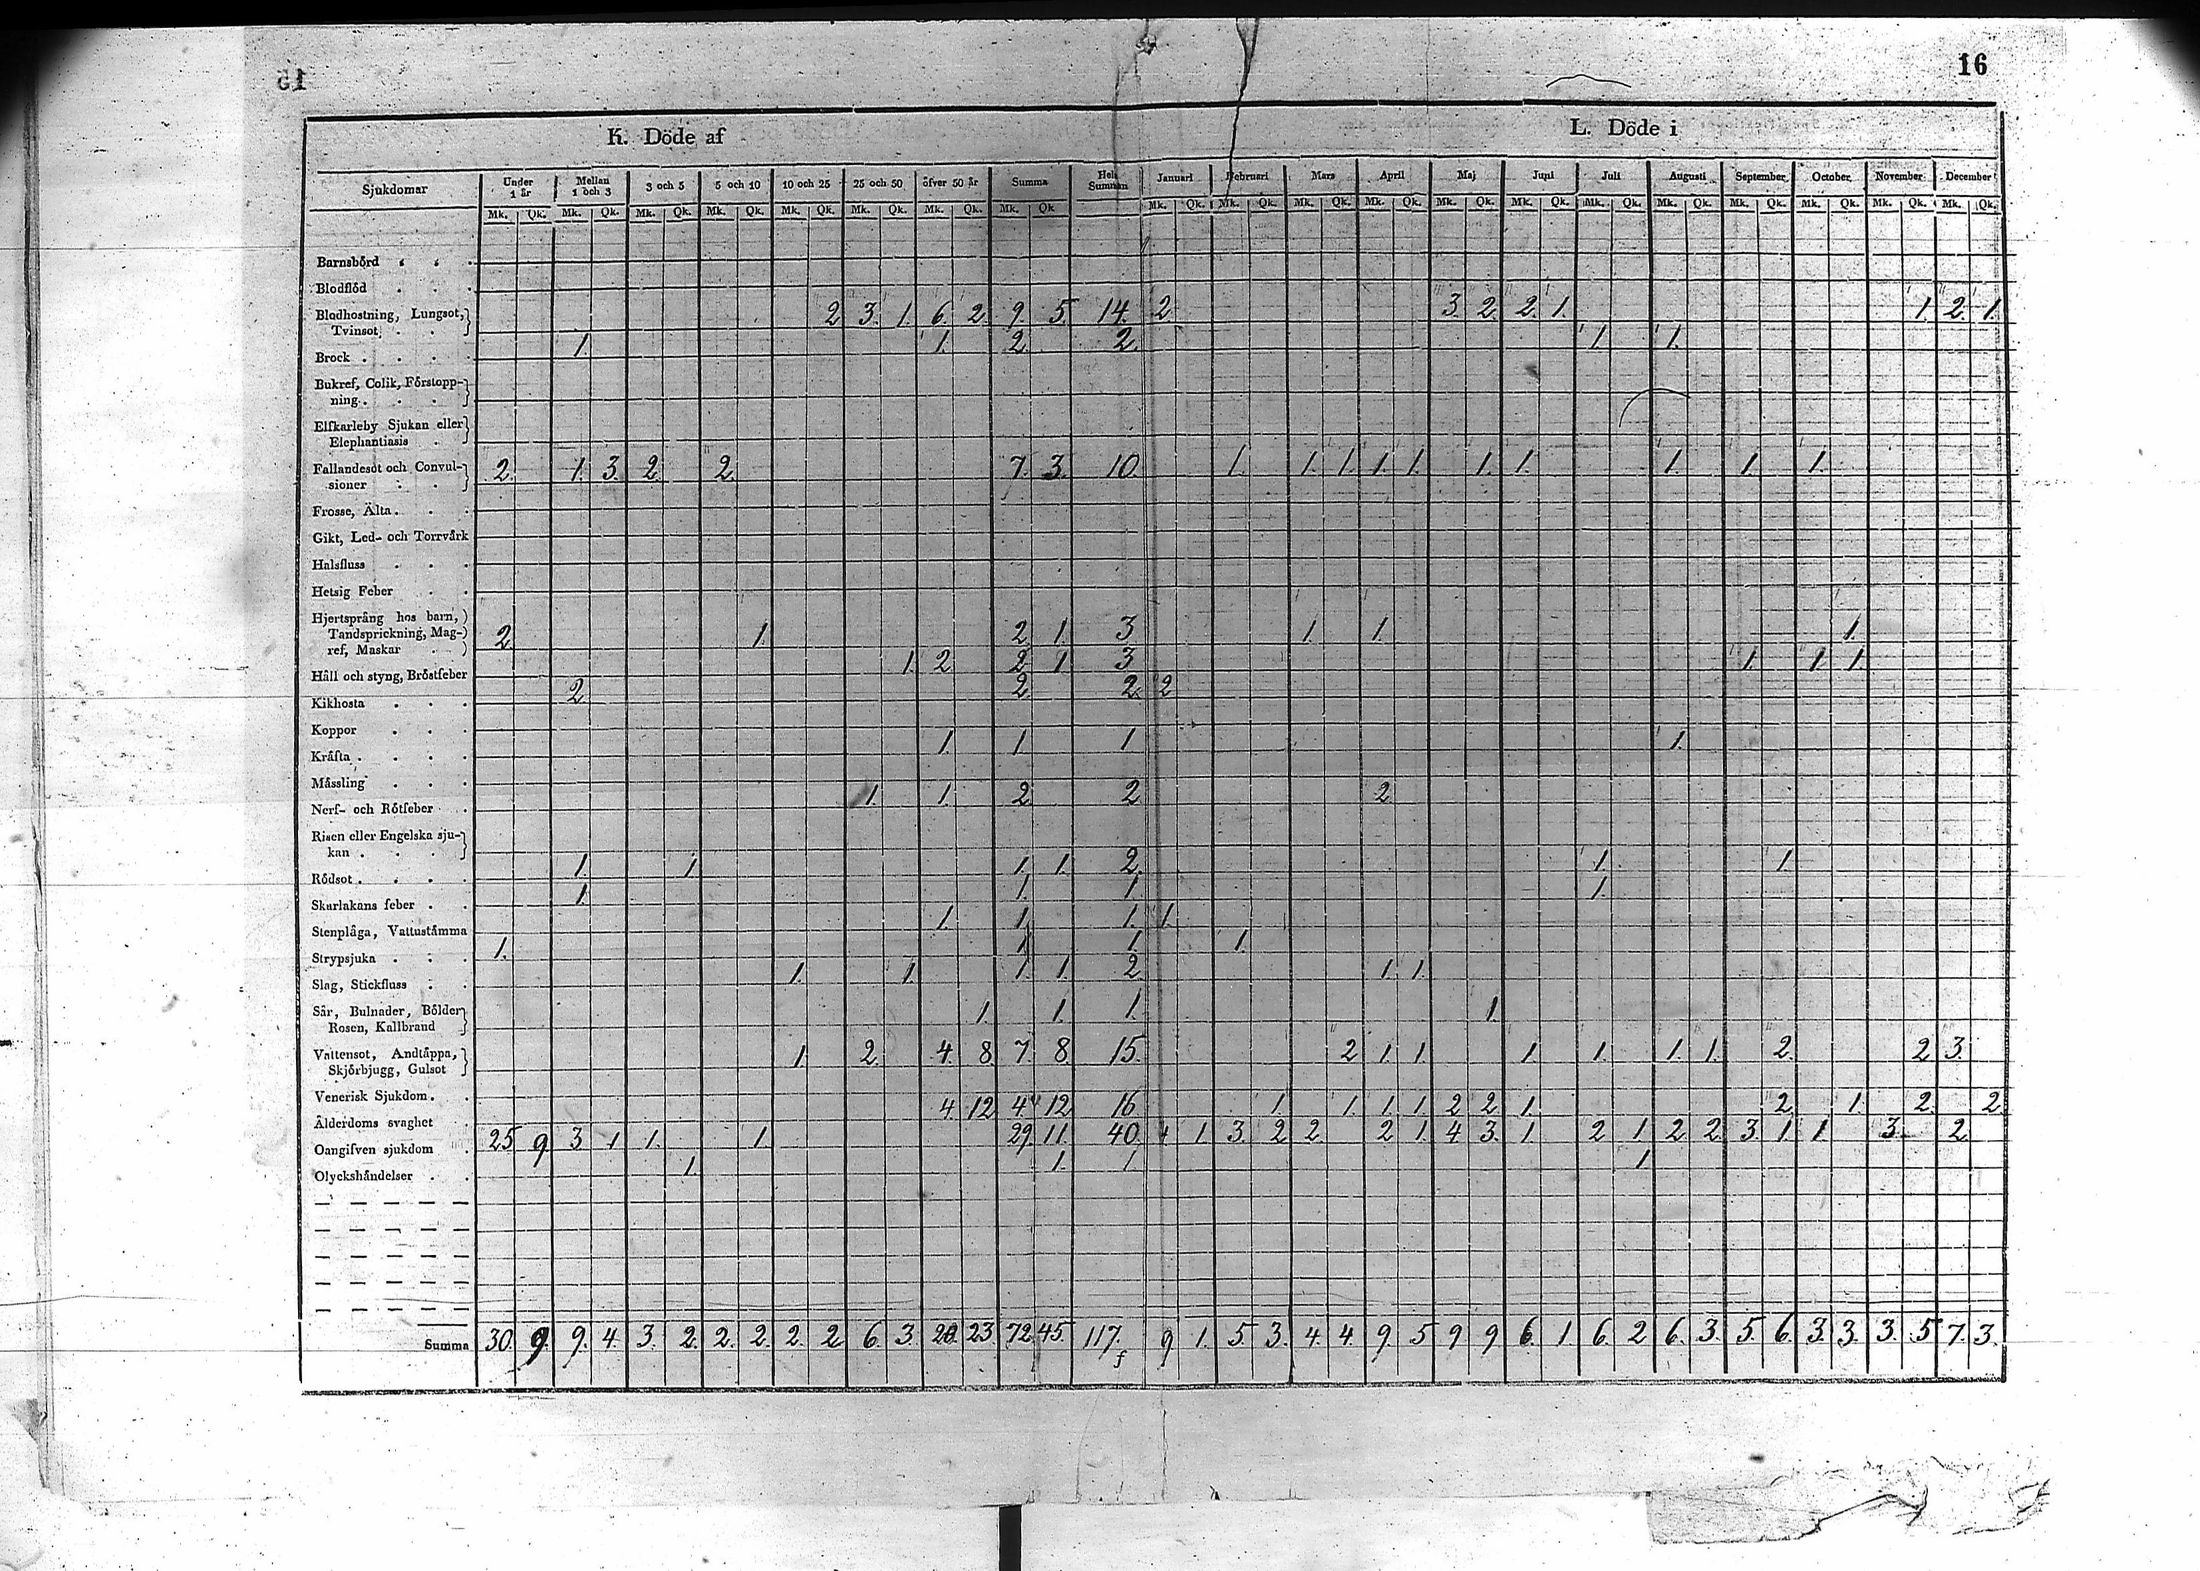 16
15
K. Döde af
L. Döde i
Sjukdomar Under 1 år Mellan 1 och 3 3 och 5 5 och 10 10 och 25 25 och 50 öfver 50 år Summa Hela Summan Januari Februari Mars April Maj Juni Juli Augusti September October November December
Mk. Qk. Mk. Qk. Mk. Qk. Mk. Qk. Mk. Qk. Mk. Qk. Mk. Qk. Mk. Qk. Mk. Qk. Mk. Qk. Mk. Qk. Mk. Qk. Mk. Qk. Mk. Qk. Mk. Qk. Mk. Qk. Mk. Qk. Mk. Qk. Mk. Qk. Mk. Qk.
Barnsbörd
Blodflöd
Blodhostning, Lungsot, 2 3. 1. 6. 2. 9. 5. 14. 2. 3. 2. 2. 1. 1. 2. 1.
Tvinsot
Brock 1. 1. 2. 2. 1. 1.
Bukref, Colik, Förstopp-
ning
Elfkarleby Sjukan eller
Elephantiasis
Fallandesot och Convul- 2. 1. 3. 2. 2. 7. 3. 10. 1. 1. 1. 1. 1. 1. 1. 1. 1. 1.
sioner
Frosse, Älta
Gikt, Led- och Torrvärk
Halsfluss
Hetsig Feber
Hjertsprång hos barn,
Tandsprickning, Mag- 2. 1. 2 1. 3 1. 1. 1.
ref, Maskar
Håll och styng, Bröstfeber 1. 2 2 1 3 1. 1. 1.
Kikhosta 2 2 2. 2
Koppor
Kräfta 1. 1. 1 1.
Mässling
Nerf- och Rötfeber 1. 1. 2 2 2
Risen eller Engelska sju-
kan
Rödsot 1. 1 1. 1. 2. 1. 1.
Skarlakans feber 1. 1. 1 1.
Stenplåga, Vattustämma 1. 1. 1. 1.
Strypsjuka 1. 1 1 1.
Slag, Stickfluss 1. 1. 1. 1. 2 1. 1.
Sår, Bulnader, Bölder 1. 1. 1. 1.
Rosen, Kallbrand
Vattensot, Andtäppa, 1. 2. 4. 8. 7. 8. 15. 2 1. 1. 1. 1. 1. 1. 2. 2 3.
Skjörbjugg, Gulsot
Venerisk Sjukdom
Ålderdoms svaghet 4 12 4 12 16 1. 1. 1. 1. 2 2 1. 2 1. 2. 2.
Oangifven sjukdom 25 9 3 1 1. 1. 29 11. 40. 4 1. 3. 2 2. 2 1. 4 3. 1. 2 1 2 2. 3. 1 1. 3. 2.
Olyckshändelser 1. 1. 1 1
Summa 30. 9. 9. 4. 3. 2. 2. 2. 2. 2 6. 3. 20. 23. 72. 45. 117. 9 1. 5. 3. 4. 4. 9. 5 9 9. 6. 1. 6. 2 6. 3. 5. 6. 3. 3. 3. 5 7. 3.